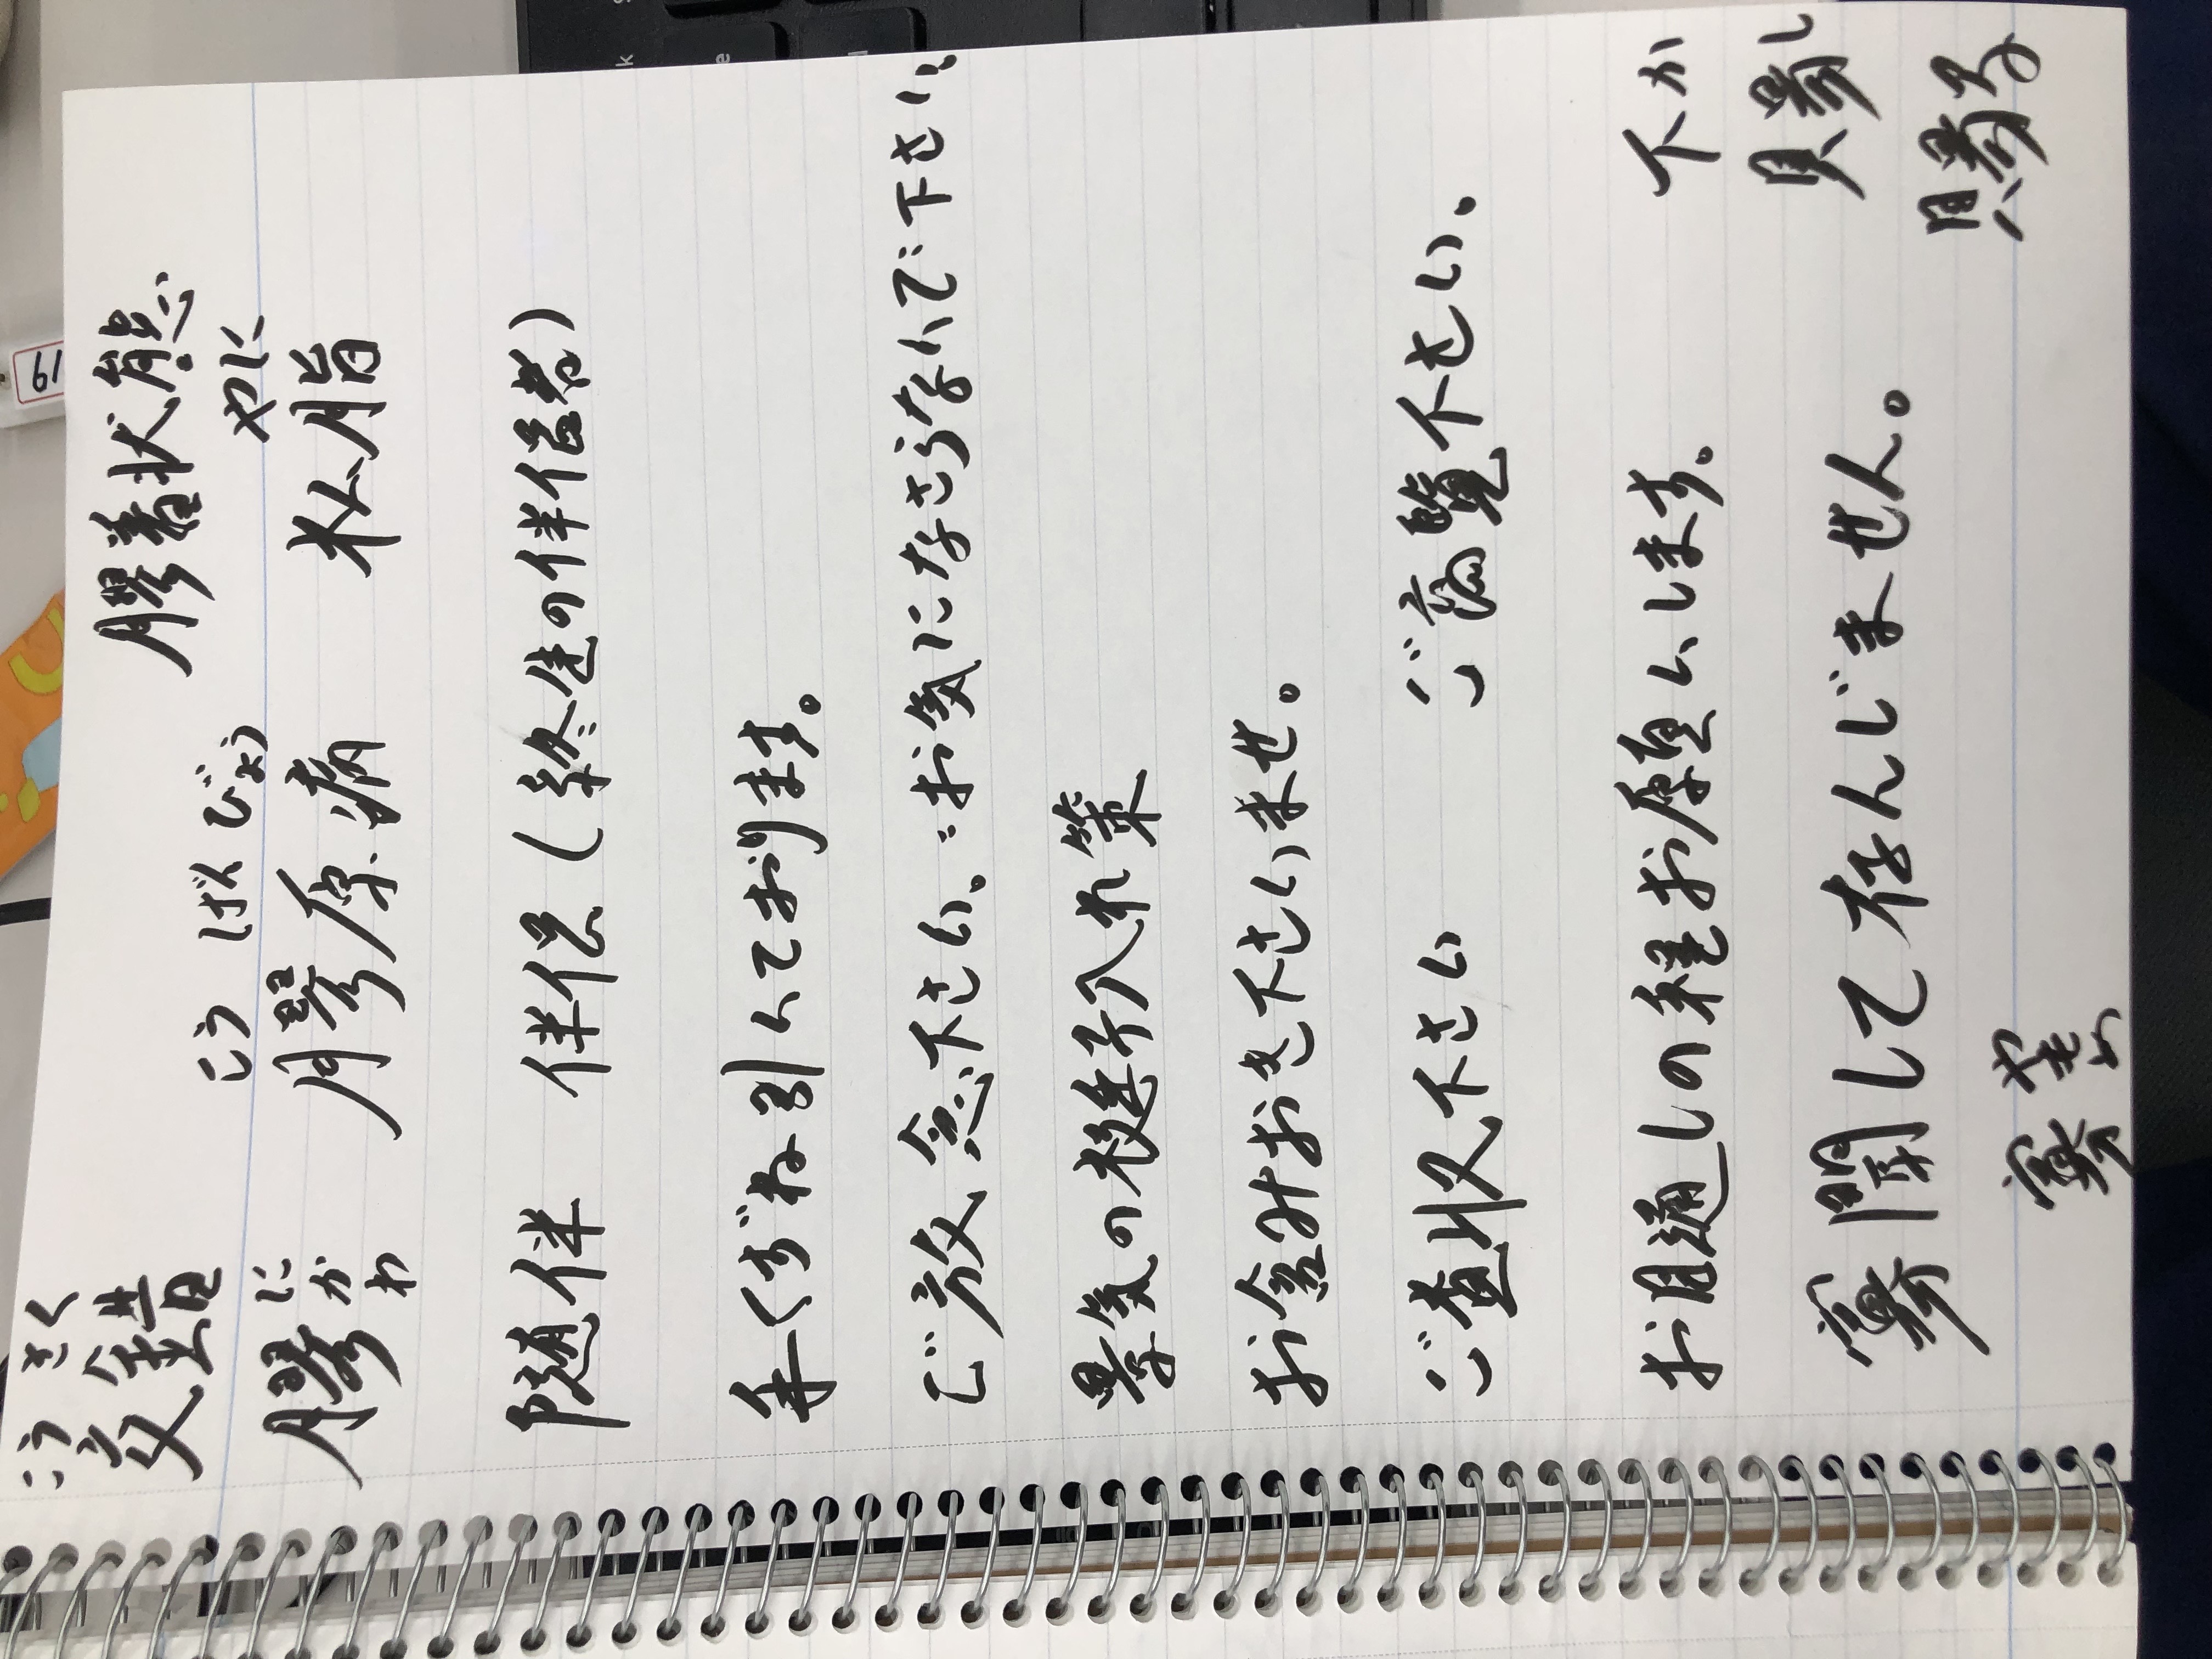 こう さく
交錯
膠着状態
にかわ
膠
こう げん びょう
膠原病
やに
松脂
随伴 伴侶(終生の伴侶者)
手くずね引いております。
ご放念下さい。:お気になさらないで下さい。
景気の梃子入れ策
お含みおき下さいませ。
ご査収下さい ご高覧下さい。
お目通しの程お願いします。
下か
賜し
寡聞して存んじません。
賜る
寡 やもめ
19